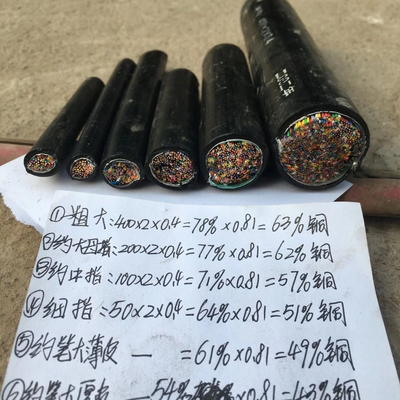 ①粗大:400×2×0.4=78%×0.81=63%铜
②约大母指:200×2×0.4=77%×0.81=62%铜
③约中指:100×2×0.4=71%×0.81=57%铜
④细指:50×2×0.4=64%×0.81=51%铜
⑤约笔大薄皮 — =61%×0.81=49%铜
⑥约笔大厚皮 —54% ×0.81=43%铜